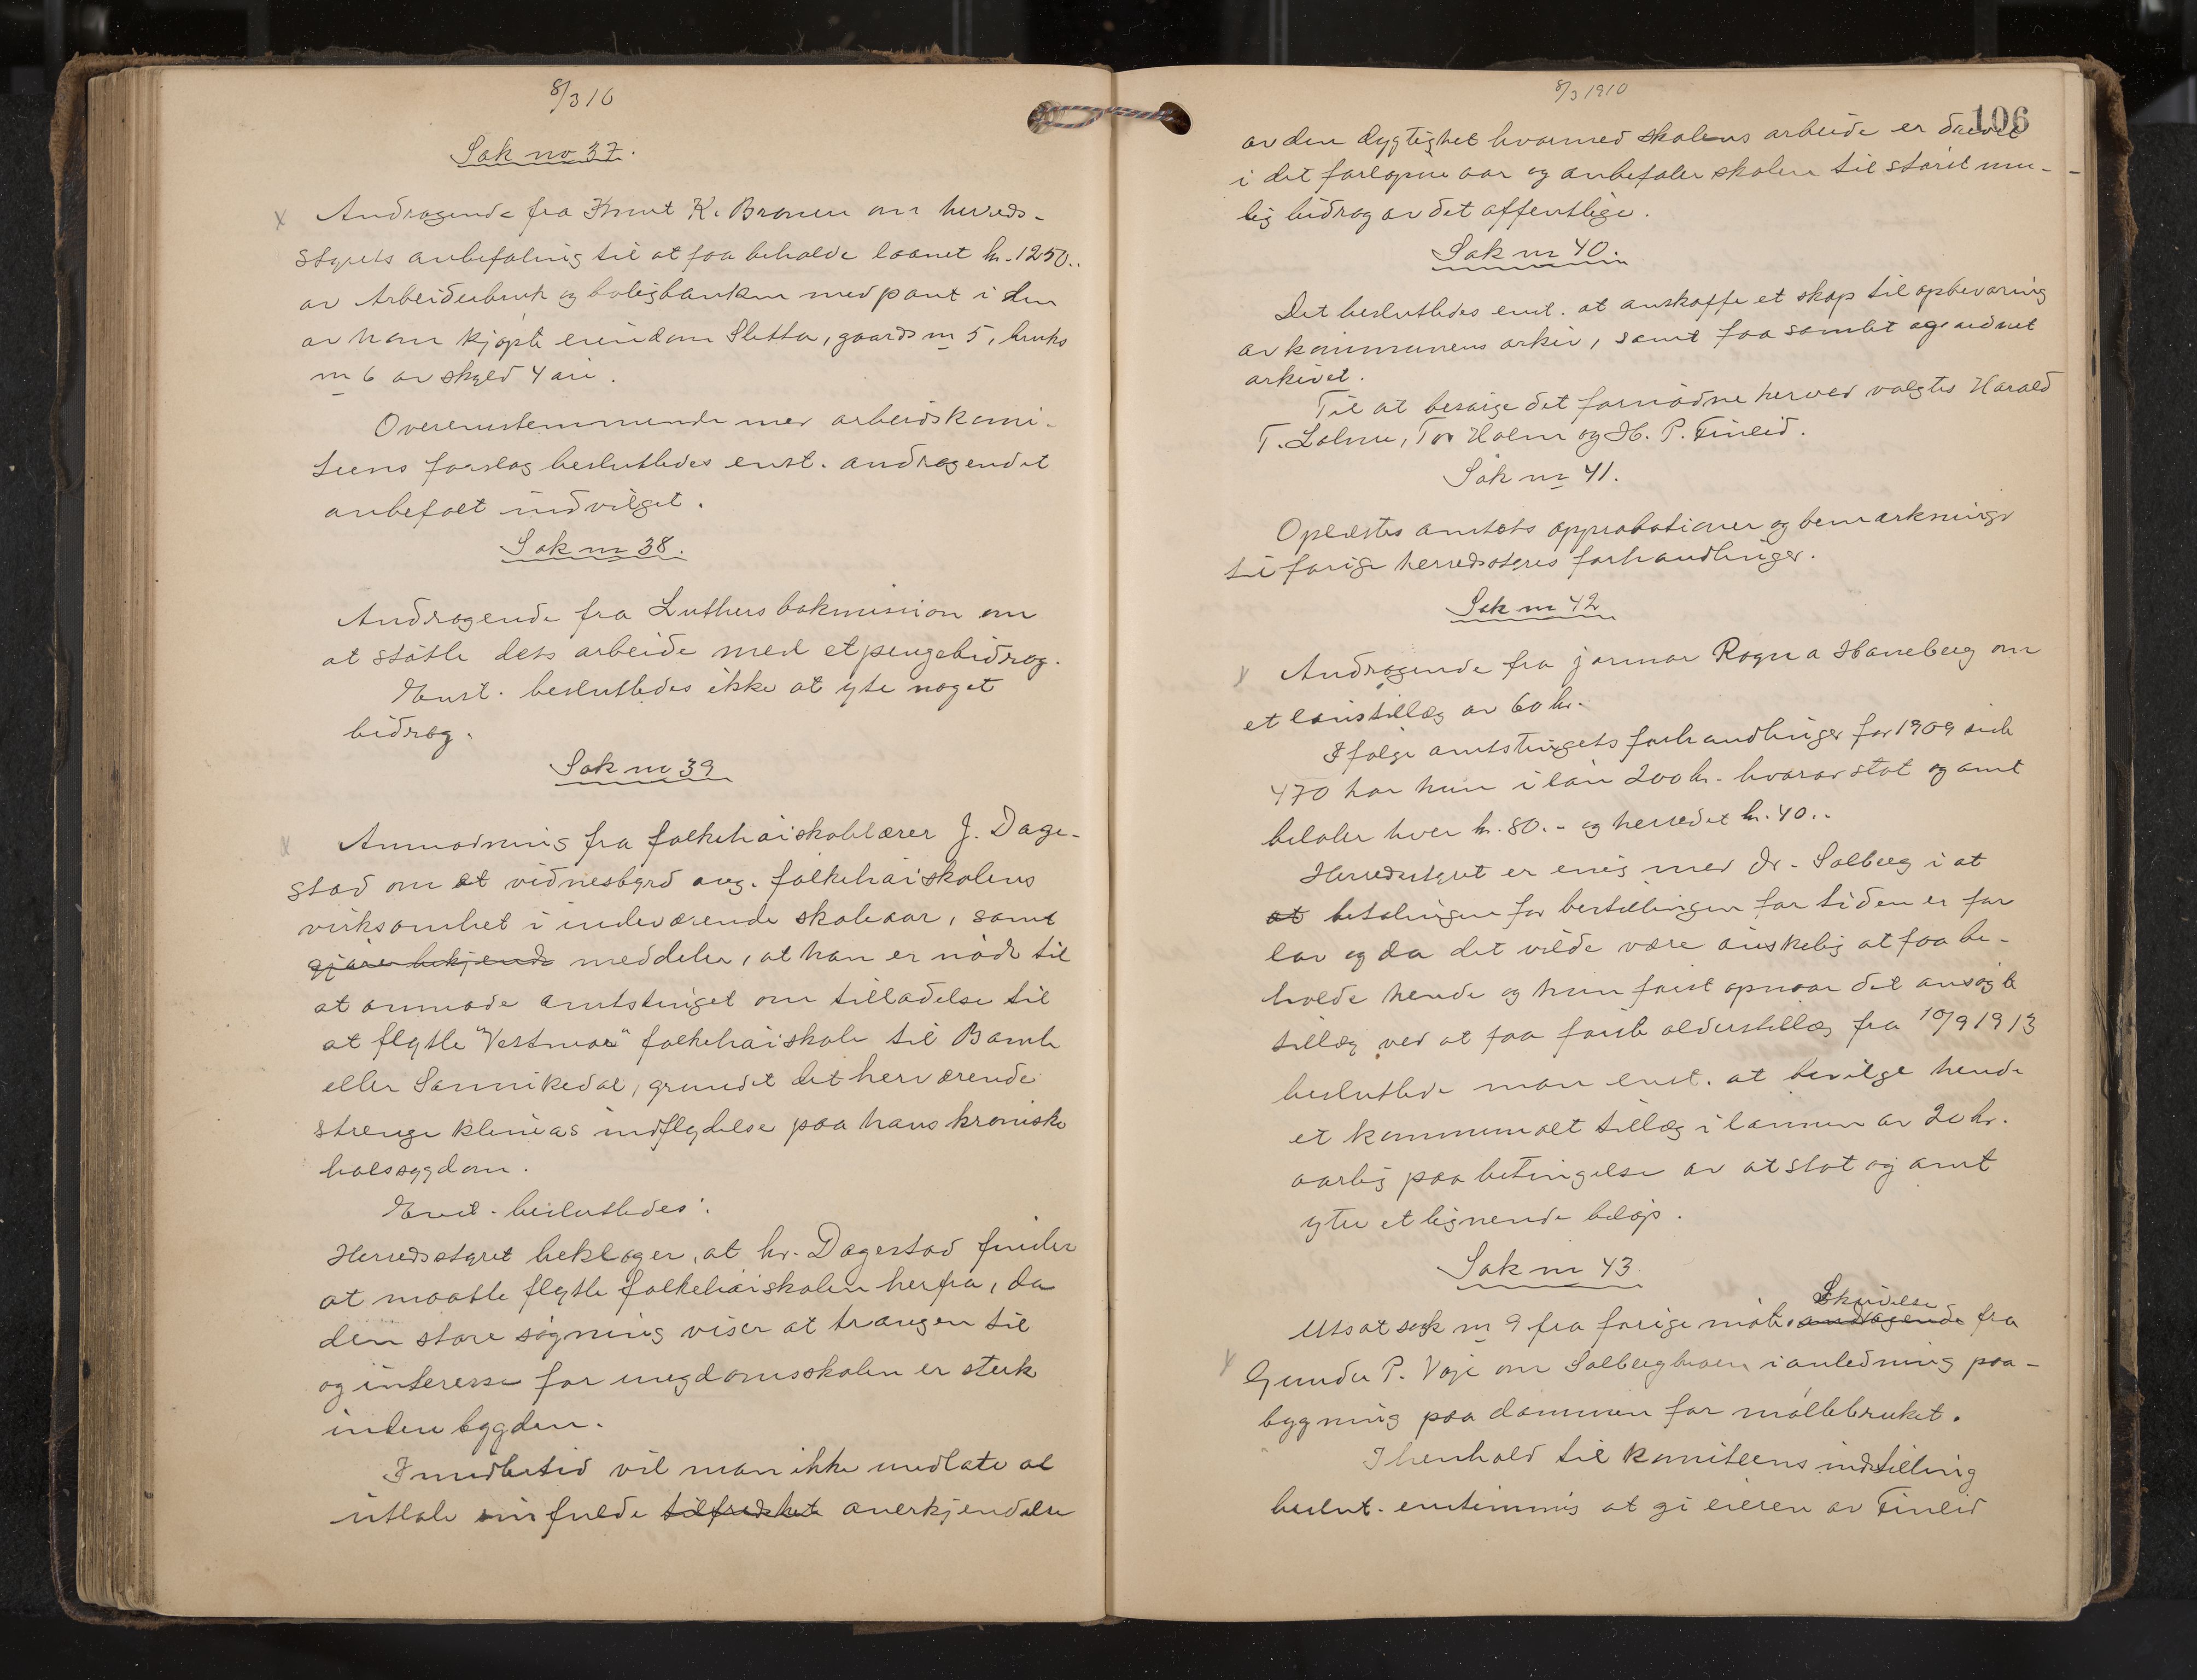 8/3 10
Sak no 37.
x Andragende fra Knut K. Bronen om herreds-
styrets anbefaling til at faa beholde laanet kr. 1250..
av Arbeiderbruk og boligbanken med pant i den
av ham kjøpte eiendom Sletta, gaards nr 5, bruks
nr 6 av skyld 4 øre.
Overensstemmende med arbeidskomi-
teens forslag besluttedes enst. andragendet
anbefalt indvilget.
Sak nr 38.
Andragende fra Luthers bokmission om
at støtte dets arbeide med et pengebidrag.
Enst. besluttedes ikke at yte noget
bidrag.
Sak nr 39
x Anmodning fra folkehøiskolelærer J. Dage-
stad om et vidnesbyrd ang. folkehøiskolens
virksomhet i indeværende skoleaar, samt
gjører bekjendt meddeler, at han er nødt til
at anmode amtstinget om tilladelse til
at flytte "Vestmar" folkehøiskole til Bamle
eller Sannikedal, grundet det herværende
strenge klimas indflydelse paa hans kroniske
halssygdom.
Enst. besluttedes:
Herredsstyret beklager, at hr. Dagestad finder
at maatte flytte folkehøiskolen herfra, da
den store søgning viser at trangen til
og interesse for ungdomsskolen er sterk
inden bygden.
Imidlertid vil man ikke undlate at
uttale sin fulde tilfredshet anerkjendelse
8/3 1910
106
av den dygtighet hvormed skolens arbeide er drevet
i det forløpne aar og anbefaler skolen til størst mu-
lig bidrag av det offentlige.
Sak nr 40.
Det besluttedes enst. at anskaffe et skap til opbevaring
av kommunens arkiv, samt faa samlet og ordnet
arkivet.
Til at besørge det fornødne herved valgtes Harald
T. Lolme, Tor Holm og H. P. Finlid.
Sak nr 41.
Oplæstes amtets approbationer og bemerkninger
til forrige herredsstyres forhandlinger.
Sak nr 42
x Andragende fra jormor Ragna Haneberg om
et lønstillæg av 60 kr.
Ifølge amtstingets forhandlinger for 1909 side
470 har hun i løn 200 kr. hvorav stat og amt
betaler hver kr. 80.- og herredet kr. 40..
Herredsstyret er enig med dr. Solberg i at
at betalingen for bestillingen for tiden er for
lav og da det vilde være ønskelig at faa be-
holde hende og hun først opnaar det ansøgte
tillæg ved at faa første alderstillæg fra 10/9 1913
besluttede man enst. at bevilge hende
et kommunalt tillæg i lønnen av 20 kr.
aarlig paa betingelse av at stat og amt
yter et lignende beløp.
Sak nr 43
Skrivelse
Utsat sak nr 9 fra forige møte andragende fra
x Gunder P. Voje om Solberghven i anledning paa-
bygning paa dammen for møllebruket.
I henhold til komiteens indstilling
beslut. enstimmig at gi eieren av Finlid